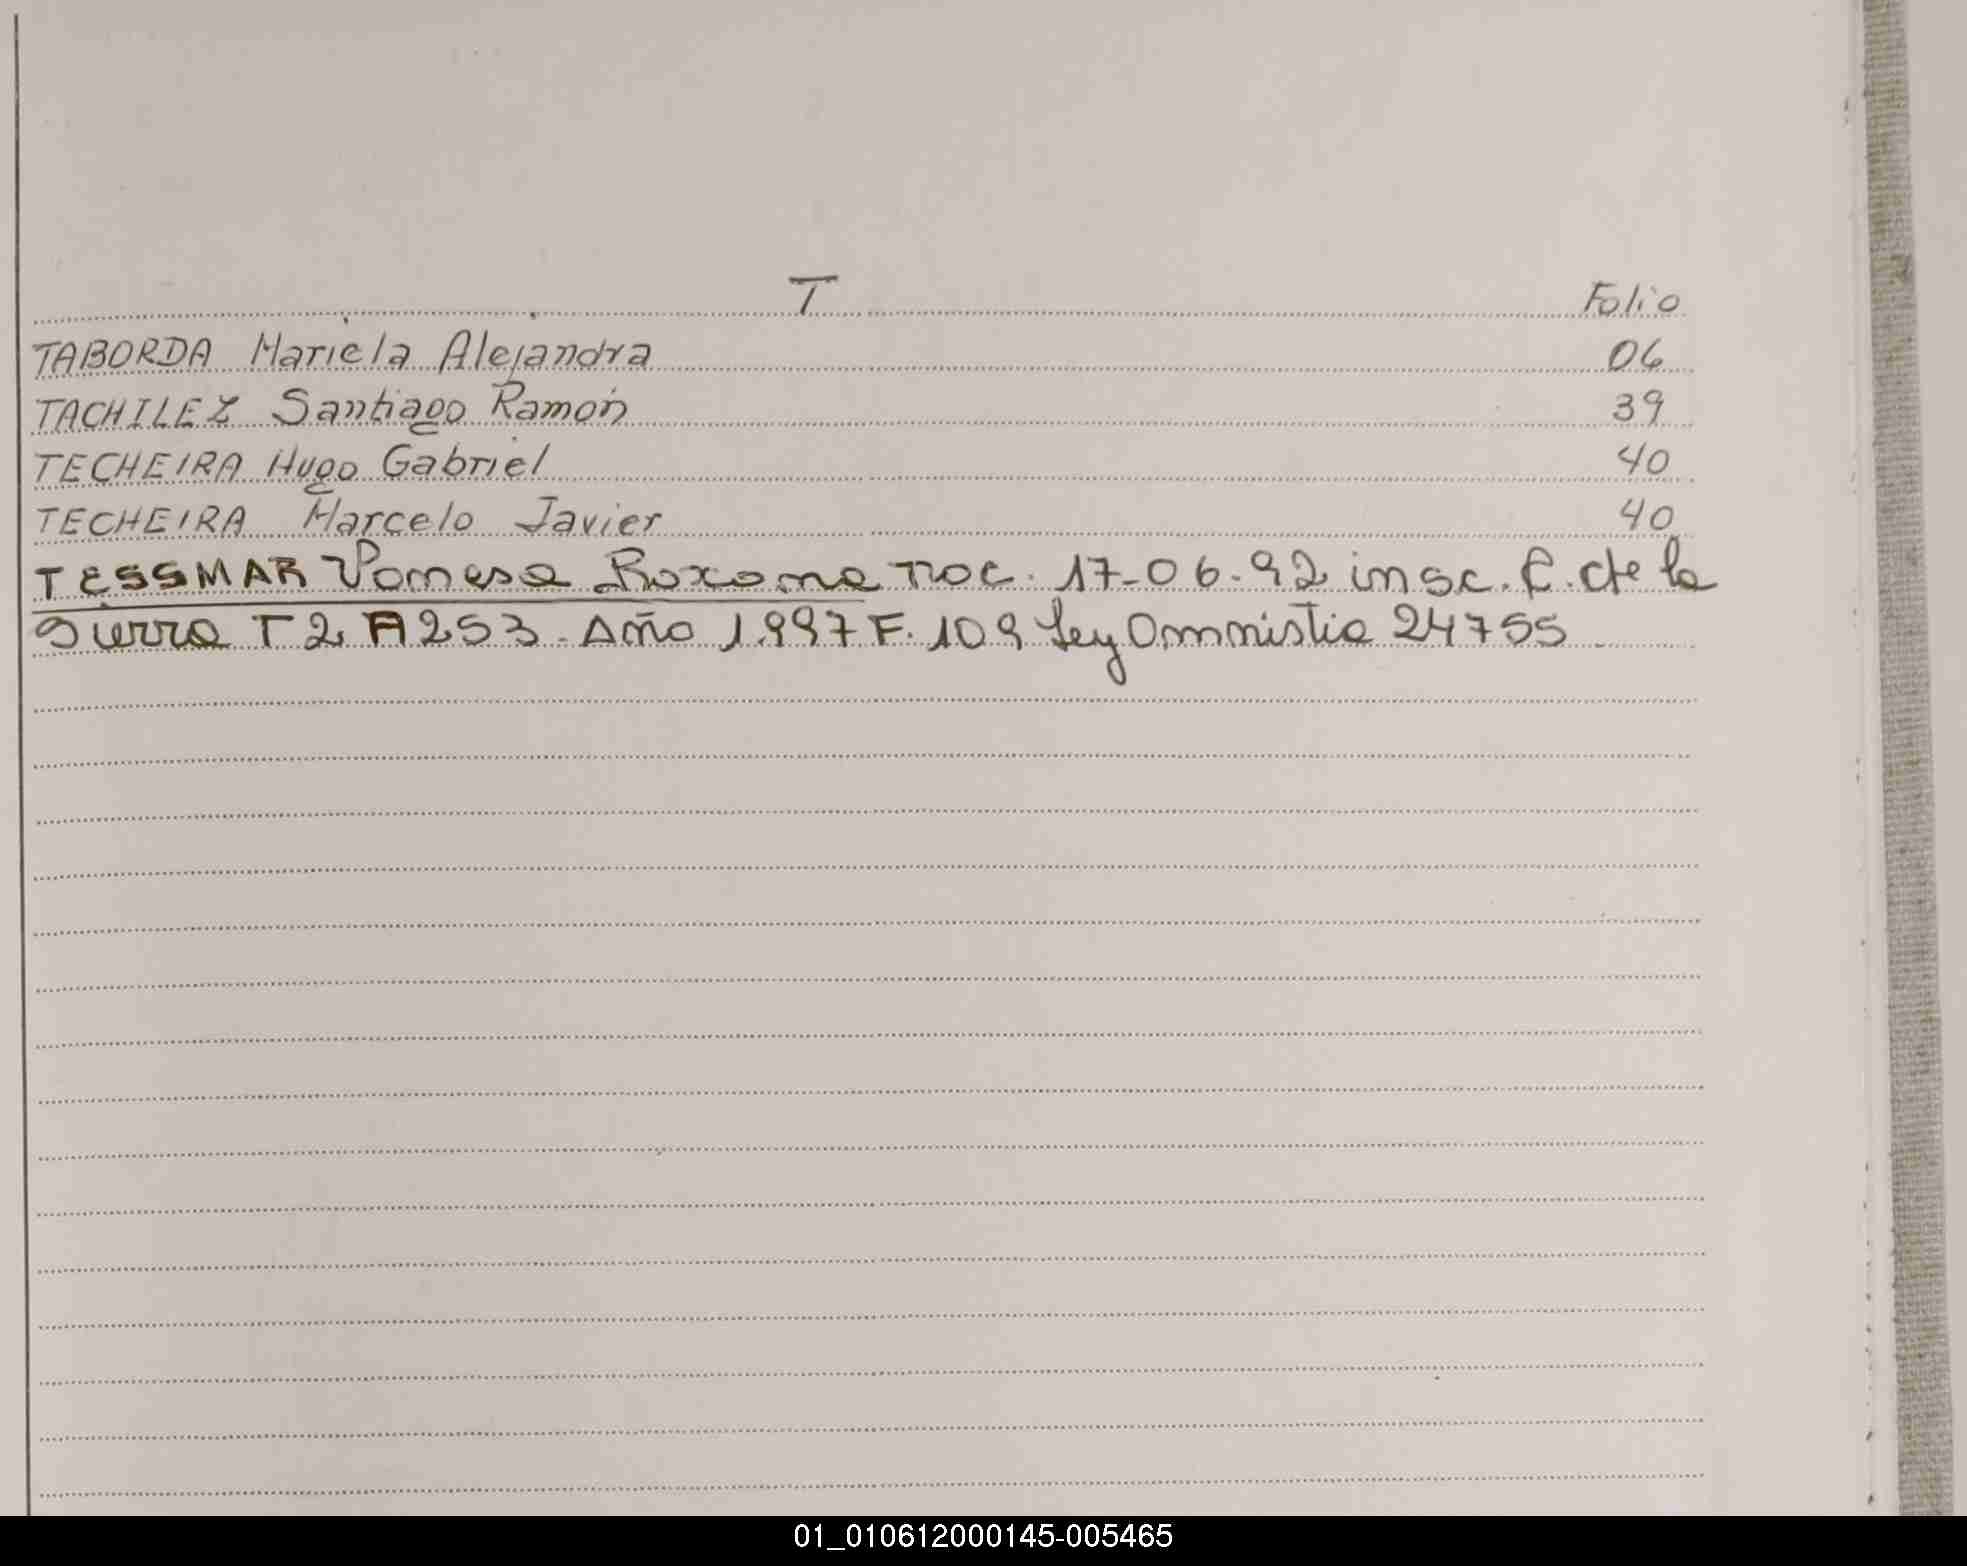 T Folio
TABORDA Mariela Alejandra 06
TACHILEZ Santiago Ramón 39
TECHEIRA Hugo Gabriel 40
TECHEIRA Marcelo Javier 40
TESSMAR Vanesa Roxana nac. 17-06-92 insc. C. de la
Sierra T2 A253. Año 1.997 F. 109 Ley Ammistia 24755
01_010612000145-005465